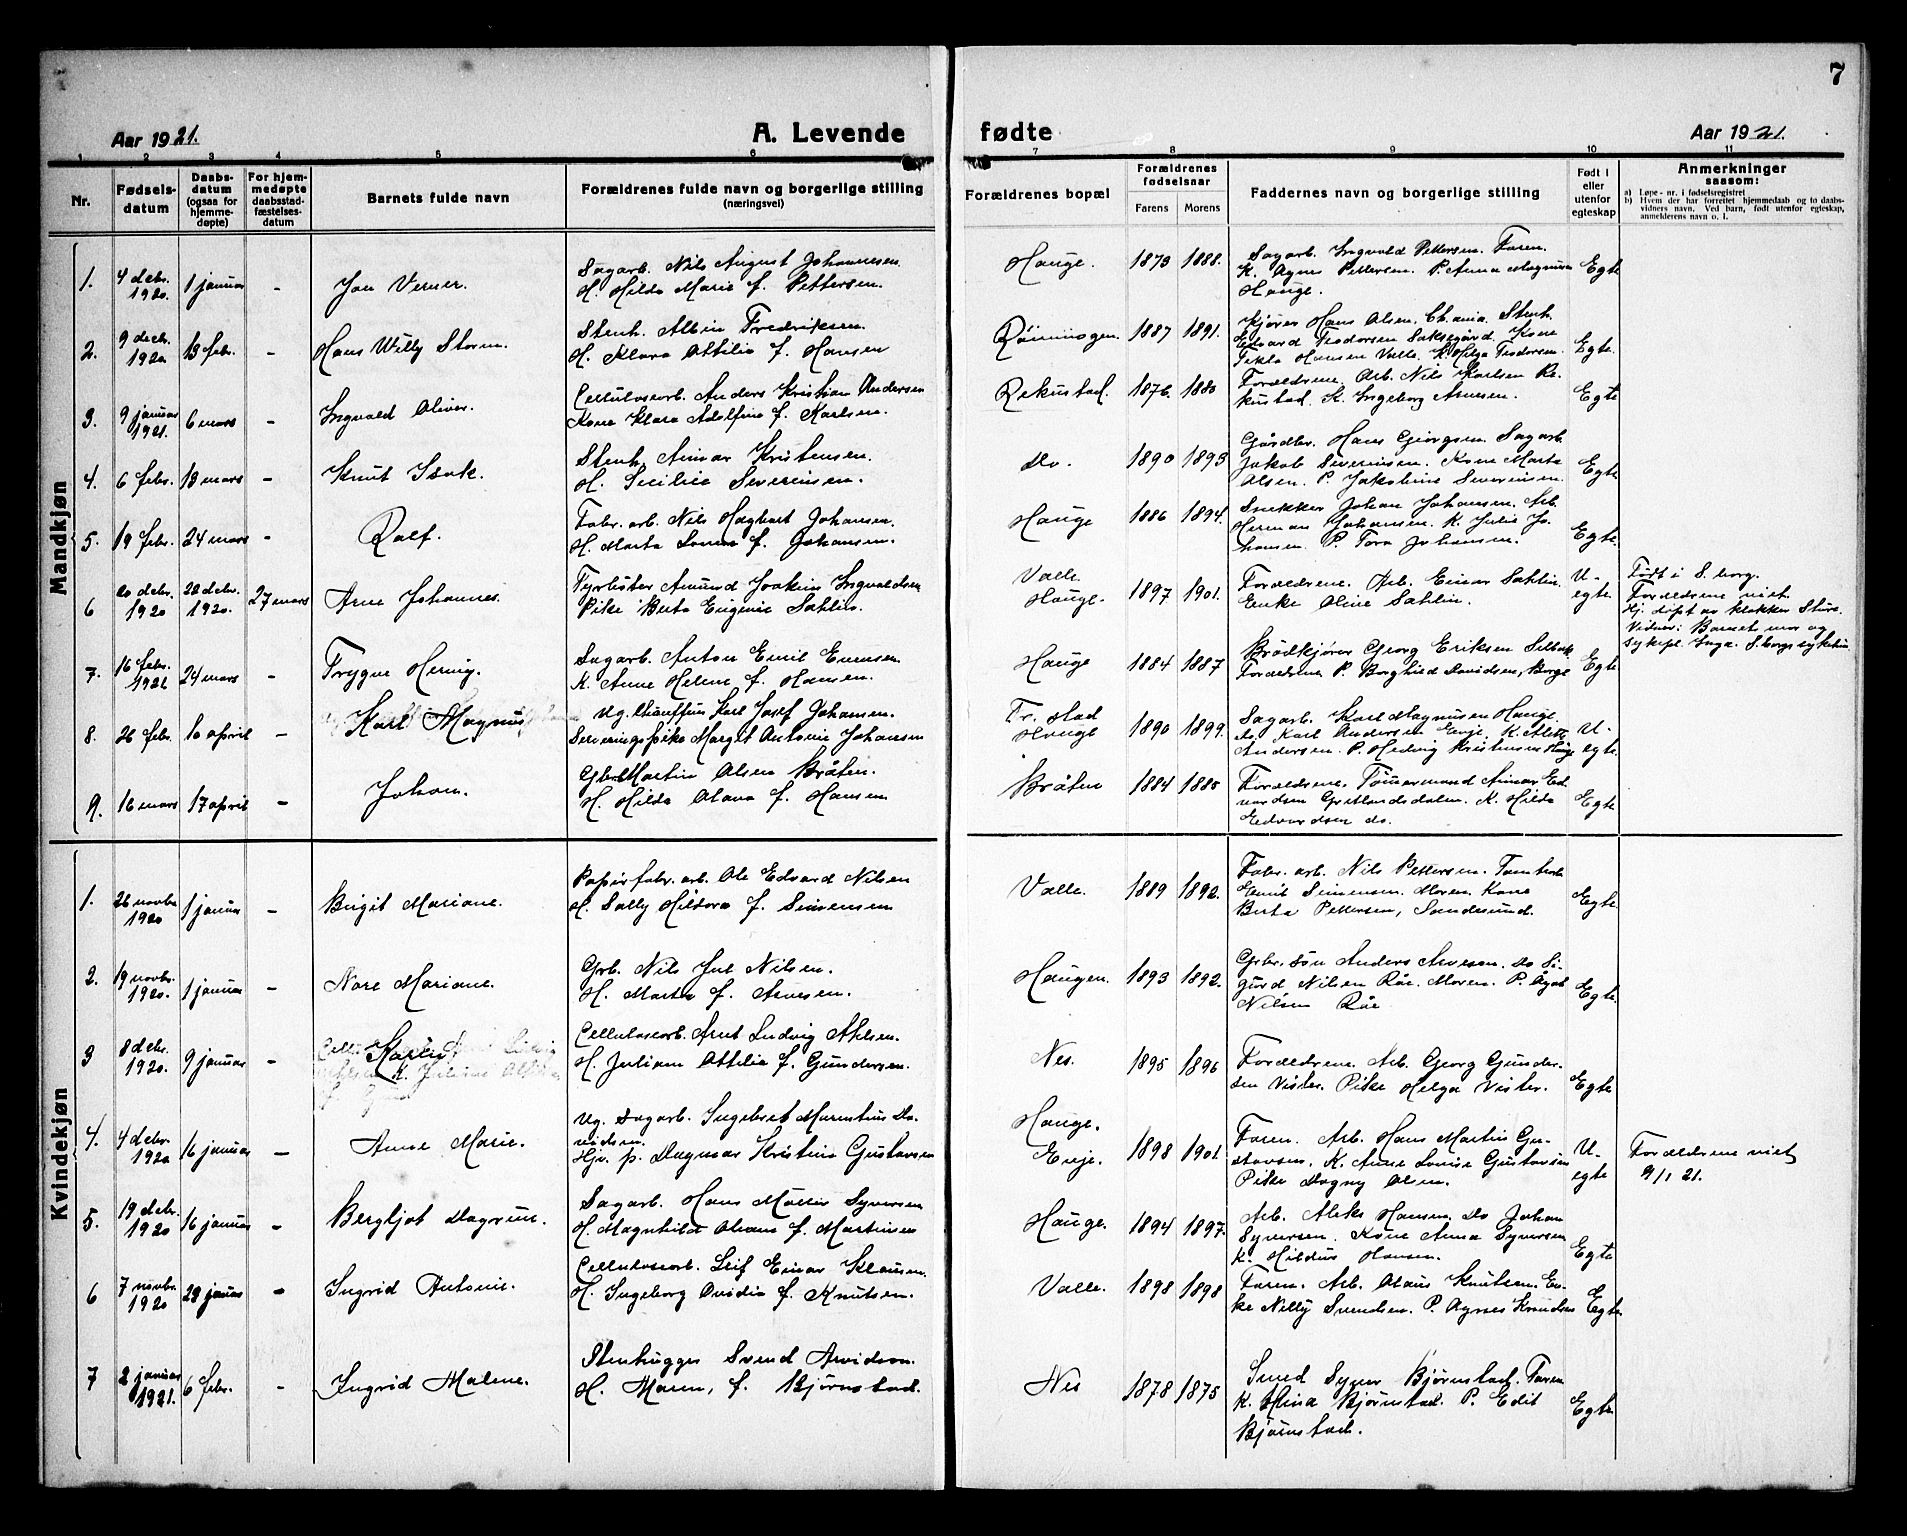 7
Aar 1921.
A. Levende fødte
Aar 1921.
1 2 3 4 5 6 7 8 9 10 11
Nr.
Fødsels-
datum
Daabs-
datum
(ogsaa for
hjemme-
døpte)
For hjem-
medøpte
daabsstad-
fæstelses-
datum
Barnets fulde navn
Forældrenes fulde navn og borgerlige stilling
(næringsvei)
Forældrenes bopæl
Forældrenes
fødselsaar
Farens Morens
Faddernes navn og borgerlige stilling
Født i
eller
utenfor
egteskap
Anmerkninger
saasom:
a) Løpe-nr. i fødselsregistret
b) Hvem der har forrettet hjemmedaab og to daabs-
vidners navn. Ved barn, født utenfor egteskap,
anmelderens navn o. l.
Mandkjøn
1. 4 debr. 1920. 1 januar - Jan Verner.
Sagarb. Nils August Johannesen
H. Hilda Marie f. Pettersen.
Hauge. 1873 1888.
Sagarb. Ingvald Pettersen. Faren.
K. Agnes Pettersen. P. Anna Magnusen
Hauge.
Egte
2. 9 decbr. 1920 13 febr. - Hans Willy Storm.
Stenh. Albin Fredriksen.
H. Klara Attilie f. Hansen
1887 1891.
Kjører Hans Olsen. Stenh.
Edvard Teodorsen Kone
Tekla Hansen Valle. K. Helga Teodorsen.
Egte
3. 9 januar 1921. 6 mars - Ingvald Oliver.
Cellulosearb. Anders Kristian Andersen
Kone Klara Adolfine f. Karlsen.
Rekustad. 1876. 1880
Forældrene. Arb. Nils Karlsen Re-
kustad. K. Ingeborg Arnesen.
Egte
4. 6 febr. 13 mars - Knut Isak.
Stenh. Arnvar Kristensen.
H. Secilie Severinsen.
Do. 1890 1893
Gårdbr. Hans Georgsen. Sagarb.
Jakob Severinsen. Kone Marta
Olsen. P. Jakobine Severinsen.
Egte
5. 19 febr. 24 mars - Rolf.
Fabr. arb. Nils Hagbart Johansen.
H. Marta Lovise f. Johansen.
Hauge 1886 1894.
Snekker Johan Johansen. Arb.
Herman Johansen. K. Julie Jo-
hansen. P. Tora Johansen.
Egte.
6 20 debr. 1920 22 debr. 1920. 27 mars Arne Johannes.
Fyrbøter Amund Joakim Ingvaldsen
Pike Berta Eugenie Sahlin.
Valle
Hauge. 1897 1901.
Forældrene. Arb. Einar Sahlin.
Enke Oline Sahlin.
U-
egte.
Født i S. borg.
Forældrene viet
Hj. døpt av klokker
Vidner: Barnets mor og
sykepl. Inga S.borgs sykehus
7. 16 febr. 1921 24 mars - Trygve Herving.
Sagarb. Anton Emil Evensen
K. Anne Helene f. Hansen.
Hauge 1884 1887
Brødkjører Georg Eriksen
Forældrene P. Borghild Davidsen, Borge
Egte
8. 26 febr. 10 april - Karl Magnus
Ug. Chauffør Karl Josef Johansen.
Serveringspike Margit Antonie Johansen
Fr. stad
Hauge 1890 1899.
Sagarb. Karl Magnusen Hauge.
do. Karl Andersen Evje.
Andersen. P. Hedvig Kristensen Hauge
U-
egte.
9. 16 mars 17 april - Johan.
Gbr. Martin Olsen Bråten.
H. Hilda Olava f. Hansen
Bråten 1884 1885
Forældrene. Tømmermand Arnvar Ed-
vardsen K. Hilda
Edvardsen do.
Egte
Kvindekjøn
1. 26 novbr. 1920 1 januar - Birgit Mariane.
Papirfabr. arb. Ole Edvard Nilsen
H. Sally Hildora f. Simensen
Valle. 1889 1892.
Fabr. arb. Nils Pettersen.
Emil Simensen. Moren. Kone
Berta Pettersen, Sandesund.
Egte.
2. 19 novbr. 1920. 1 januar - Nore Mariane.
Grb. Nils Jul Nilsen.
H. Marta f. Arnesen.
Haugen. 1893 1892.
Gbr. søn Anders Arnesen. Do Si-
gurd Nilsen Råe. Moren. P. Ågot
Nilsen Råe
Egte.
3 8 debr. 1920. 9 januar - Karly
Cellulosearb. Arnt Ludvig Atlesen.
H. Juliane Attilie f. Gundersen.
Nes. 1895 1896
Forældrene. Arb. Georg Gunder-
sen Vister. Pike Helga Vister.
Egte
4. 4 debr. 1920 16 januar - Anne Marie.
Ug. Dagarb. Ingebret Marentius Da-
vidsen.
Hjv. p. Dagmar Kristine Gustavsen
Hauge.
Evje. 1898 1901.
Faren. Arb. Hans Martin Gu-
stavsen. K. Anne Lovise Gustavsen
Pike Dagny Olsen.
U-
egte
Forældrene viet
9/1 21.
5. 19 debr. 1920 16 januar - Bergljot Dagrun.
Sagarb. Hans Møller Syversen
H. Magnhild Olava f. Martinsen
Hauge. 1894 1897.
Arb. Aleks Hansen. Do Johan
Syversen. Kone Anna Syversen
K. Hildur Hansen.
Egte
6 7 novbr. 1920 23 januar - Ingrid Antonie.
Cellulosearb. Leif Einar Klausen.
H. Ingeborg Ovidia f. Knutsen.
Valle. 1898 1898
Faren. Arb. Olaus Knutsen. En-
ke Nelly Svendsen. P. Agnes Knudsen
Egte
7 2 januar 1921. 6 febr. - Ingrid Malene.
Stenhugger Svend Arvidson.
H. Maren, f. Bjørnstad.
Nes 1878 1875
Smed Syver Bjørnstad. Faren
K. Mina Bjørnstad. P. Edit
Bjørnstad.
Egte